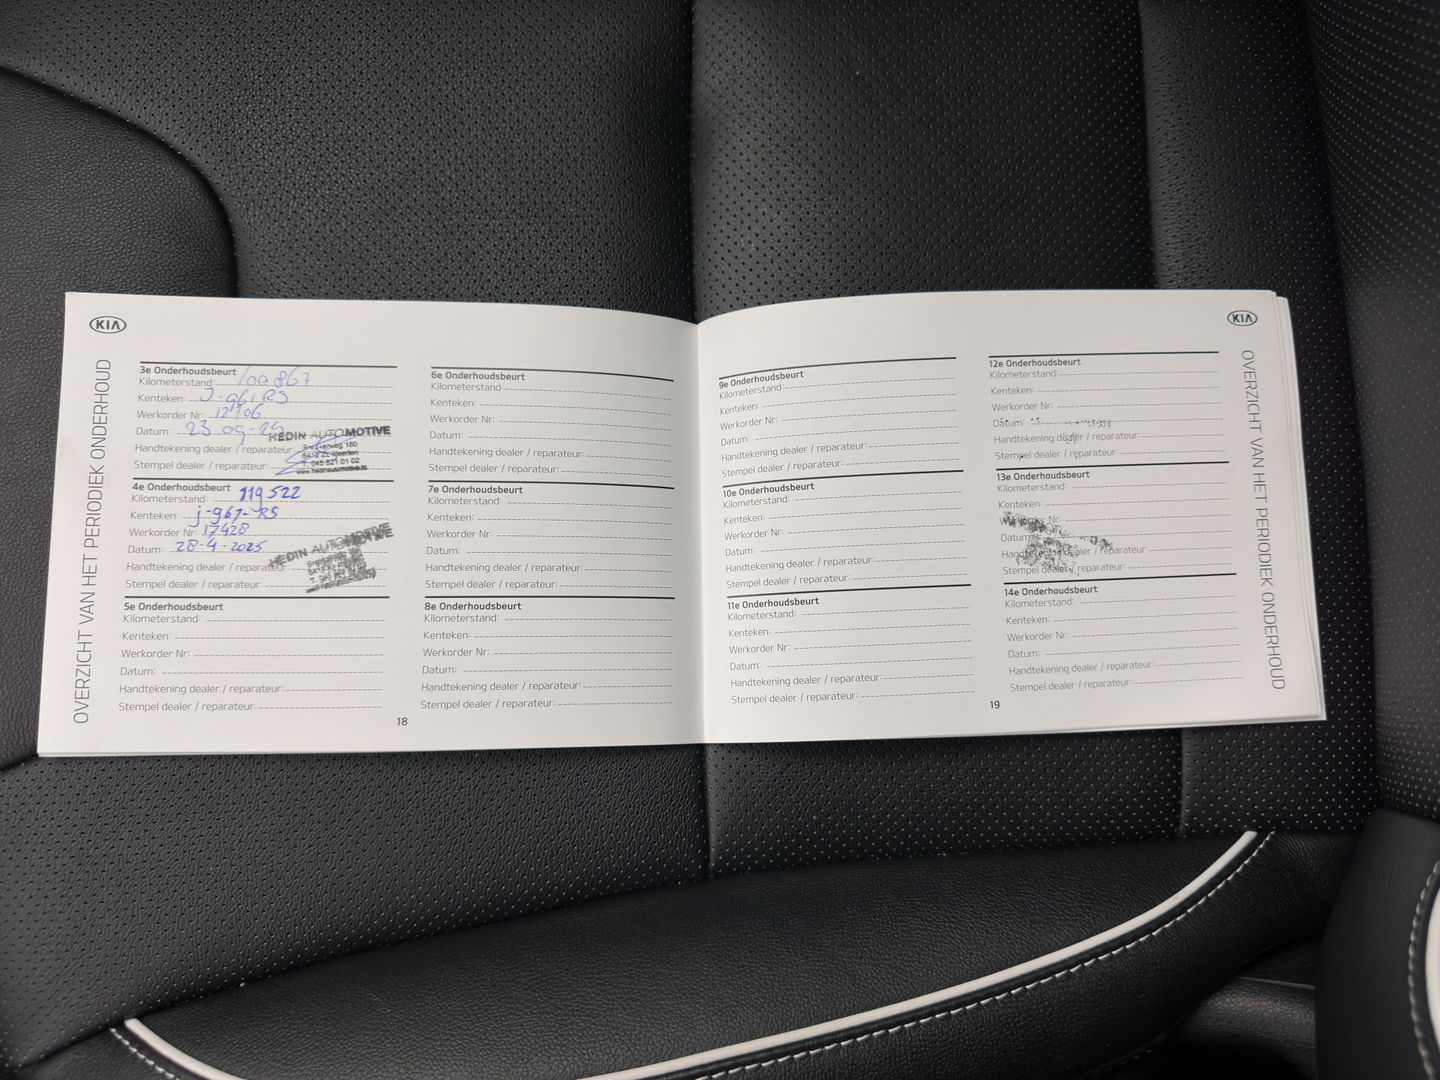 KIA
OVERZICHT VAN HET PERIODIEK ONDERHOUD
3e Onderhoudsbeurt
Kilometerstand: 100867
Kenteken: J-961RS
Werkorder Nr: 12706
Datum: 23 09-24
Handtekening dealer / reparateur:
Stempel dealer / reparateur:
HEDIN AUTOMOTIVE
T. 045 521 01 02
www.hedinautomotive.nl
4e Onderhoudsbeurt
Kilometerstand: 119522
Kenteken: j-967-RS
Werkorder Nr: 17428
Datum: 28-4-2025
Handtekening dealer / reparateur:
Stempel dealer / reparateur:
HEDIN AUTOMOTIVE
5e Onderhoudsbeurt
Kilometerstand:
Kenteken:
Werkorder Nr:
Datum:
Handtekening dealer / reparateur:
Stempel dealer / reparateur:
6e Onderhoudsbeurt
Kilometerstand:
Kenteken:
Werkorder Nr:
Datum:
Handtekening dealer / reparateur:
Stempel dealer / reparateur:
7e Onderhoudsbeurt
Kilometerstand:
Kenteken:
Werkorder Nr:
Datum:
Handtekening dealer / reparateur:
Stempel dealer / reparateur:
8e Onderhoudsbeurt
Kilometerstand:
Kenteken:
Werkorder Nr:
Datum:
Handtekening dealer / reparateur:
Stempel dealer / reparateur:
18
9e Onderhoudsbeurt
Kilometerstand:
Kenteken:
Werkorder Nr:
Datum:
Handtekening dealer / reparateur:
Stempel dealer / reparateur:
10e Onderhoudsbeurt
Kilometerstand:
Kenteken:
Werkorder Nr:
Datum:
Handtekening dealer / reparateur:
Stempel dealer / reparateur:
11e Onderhoudsbeurt
Kilometerstand:
Kenteken:
Werkorder Nr:
Datum:
Handtekening dealer / reparateur:
Stempel dealer / reparateur:
12e Onderhoudsbeurt
Kilometerstand:
Kenteken:
Werkorder Nr:
Datum:
Handtekening dealer / reparateur:
Stempel dealer / reparateur:
13e Onderhoudsbeurt
Kilometerstand:
Kenteken:
Werkorder Nr:
Datum:
Handtekening dealer / reparateur:
Stempel dealer / reparateur:
14e Onderhoudsbeurt
Kilometerstand:
Kenteken:
Werkorder Nr:
Datum:
Handtekening dealer / reparateur:
Stempel dealer / reparateur:
19
KIA
OVERZICHT VAN HET PERIODIEK ONDERHOUD